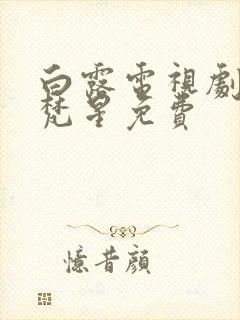 白露電視劇
梵星免費
憶昔顏